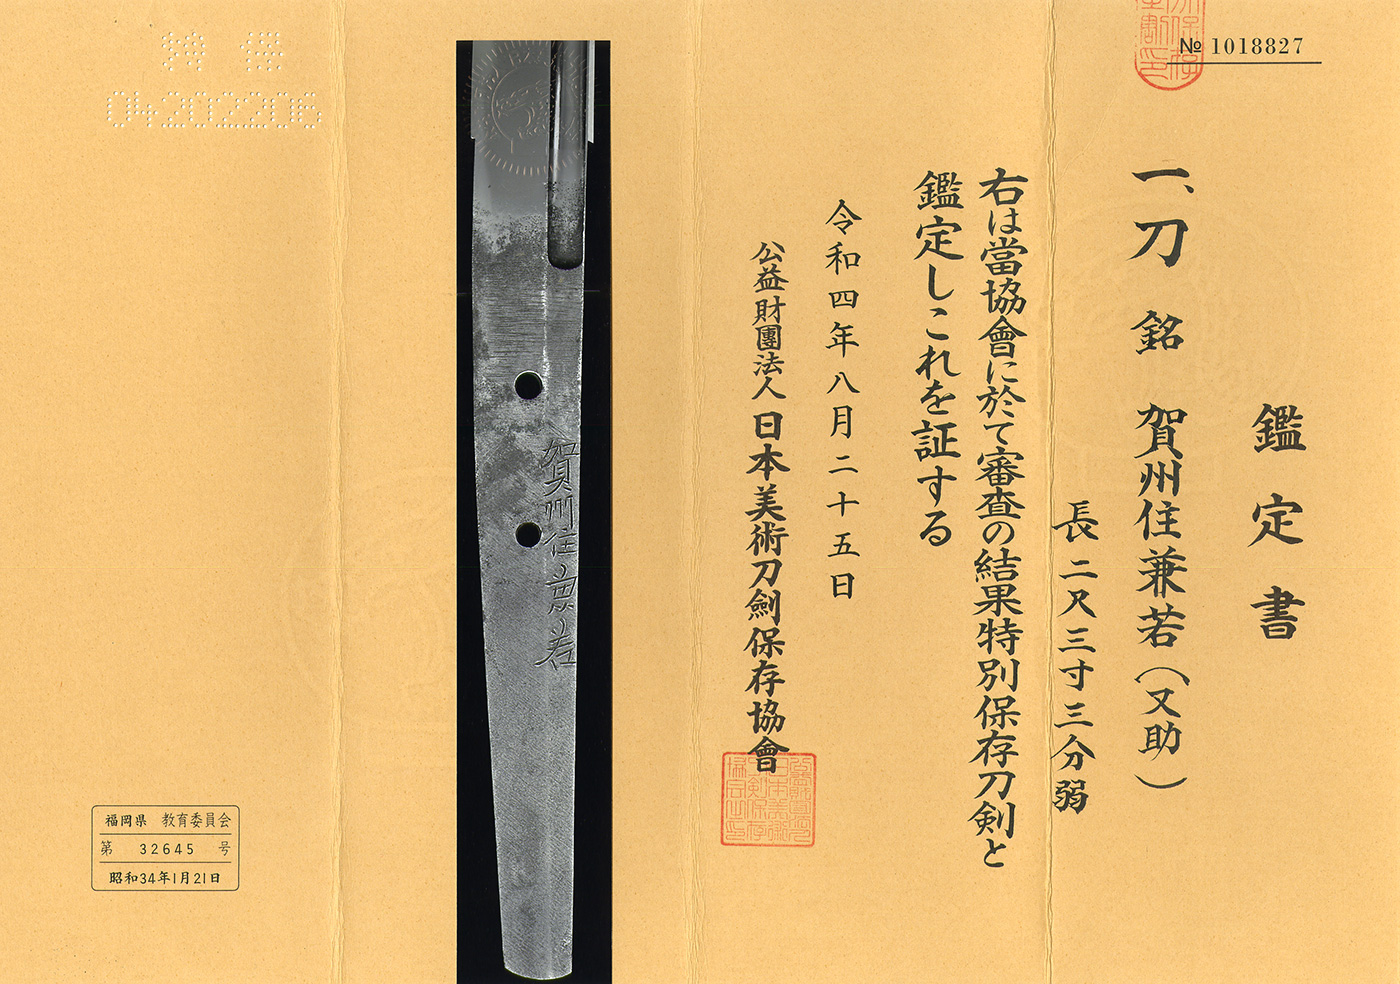 № 1018827
鑑定書
一、刀 銘 賀州住兼若（又助）
長二尺三寸三分弱
右は當協會に於て審査の結果特別保存刀剣と
鑑定しこれを証する
令和四年八月二十五日
公益財團法人日本美術刀劍保存協會
賀州住兼若
特保
04202206
福岡県 教育委員会
第 32645 号
昭和34年1月21日